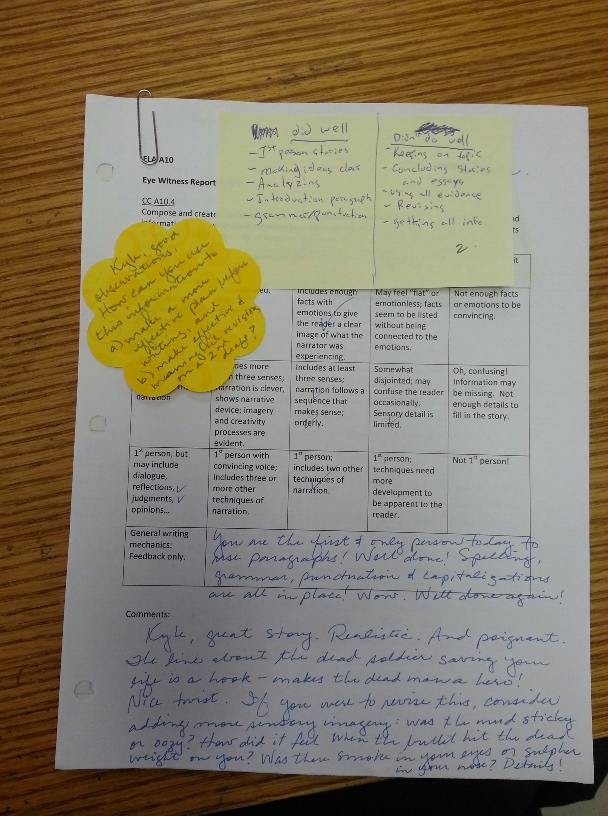 ELA A10
Eye Witness Report
CC A10.4
Compose and create
did well
- 1st person stories
- making ideas clear
- Analyzing
- Introduction paragraph
- grammar/punctuation
Didn't do well
- Keeping on topic
- Concluding stories
and essays
- Using all evidence
- Revising
- getting all info
2
Kyle, good
observations.
How can you use
this information to
a) make a more
effective plan before
writing? and
b) make effective &
meaningful revising
on a 2nd
draft?
Includes enough
facts with
emotions to give
the reader a clear
image of what the
narrator was
experiencing.
May feel "flat" or
emotionless; facts
seem to be listed
without being
connected to the
emotions.
Not enough facts
or emotions to be
convincing.
narration
more
three senses;
narration is clever,
shows narrative
device; imagery
and creativity
processes are
evident.
Includes at least
three senses;
narration follows a
sequence that
makes sense;
orderly.
Somewhat
disjointed; may
confuse the reader
occasionally.
Sensory detail is
limited.
Oh, confusing!
Information may
be missing. Not
enough details to
fill in the story.
1st person, but
may include
dialogue,
reflections,
judgments,
opinions...
1st person with
convincing voice;
includes three or
more other
techniques of
narration.
1st person;
includes two other
techniques of
narration.
1st person;
techniques need
more
development to
be apparent to the
reader.
Not 1st person!
General writing
mechanics:
Feedback only.
You are the first & only person today to
use paragraphs! Well done! Spelling,
grammar, punctuation & capitalizations
are all in place! Wow. Well done again!
Comments:
Kyle, great story. Realistic. And poignant.
The line about the dead soldier saving your
life is a hook - makes the dead man a hero!
Nice twist. If you were to revise this, consider
adding more sensory imagery: was the mud sticky
or oozy? How did it feel when the bullet hit the dead
weight on you? Was there smoke in your eyes or sulpher
in your nose? Details!